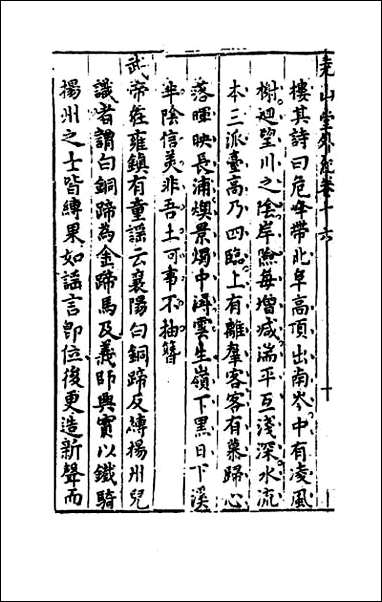 堯山堂外紀卷十六
十
樓其詩曰危峰帶北阜高頂出南岑中有凌風
榭迴望川之陰岸險每增減湍平互淺深水流
本三派臺高乃四臨上有離羣客客有慕歸心
落暉映長浦煥景燭中潯雲生嶺下黑日下溪
半陰信美非吾土何事不抽簪
武帝在雍鎮有童謡云襄陽白銅蹄反縛揚州兒
識者謂白銅蹄為金蹄馬及義師興實以鐵騎
揚州之士皆縛果如謡言卽位後更造新聲而